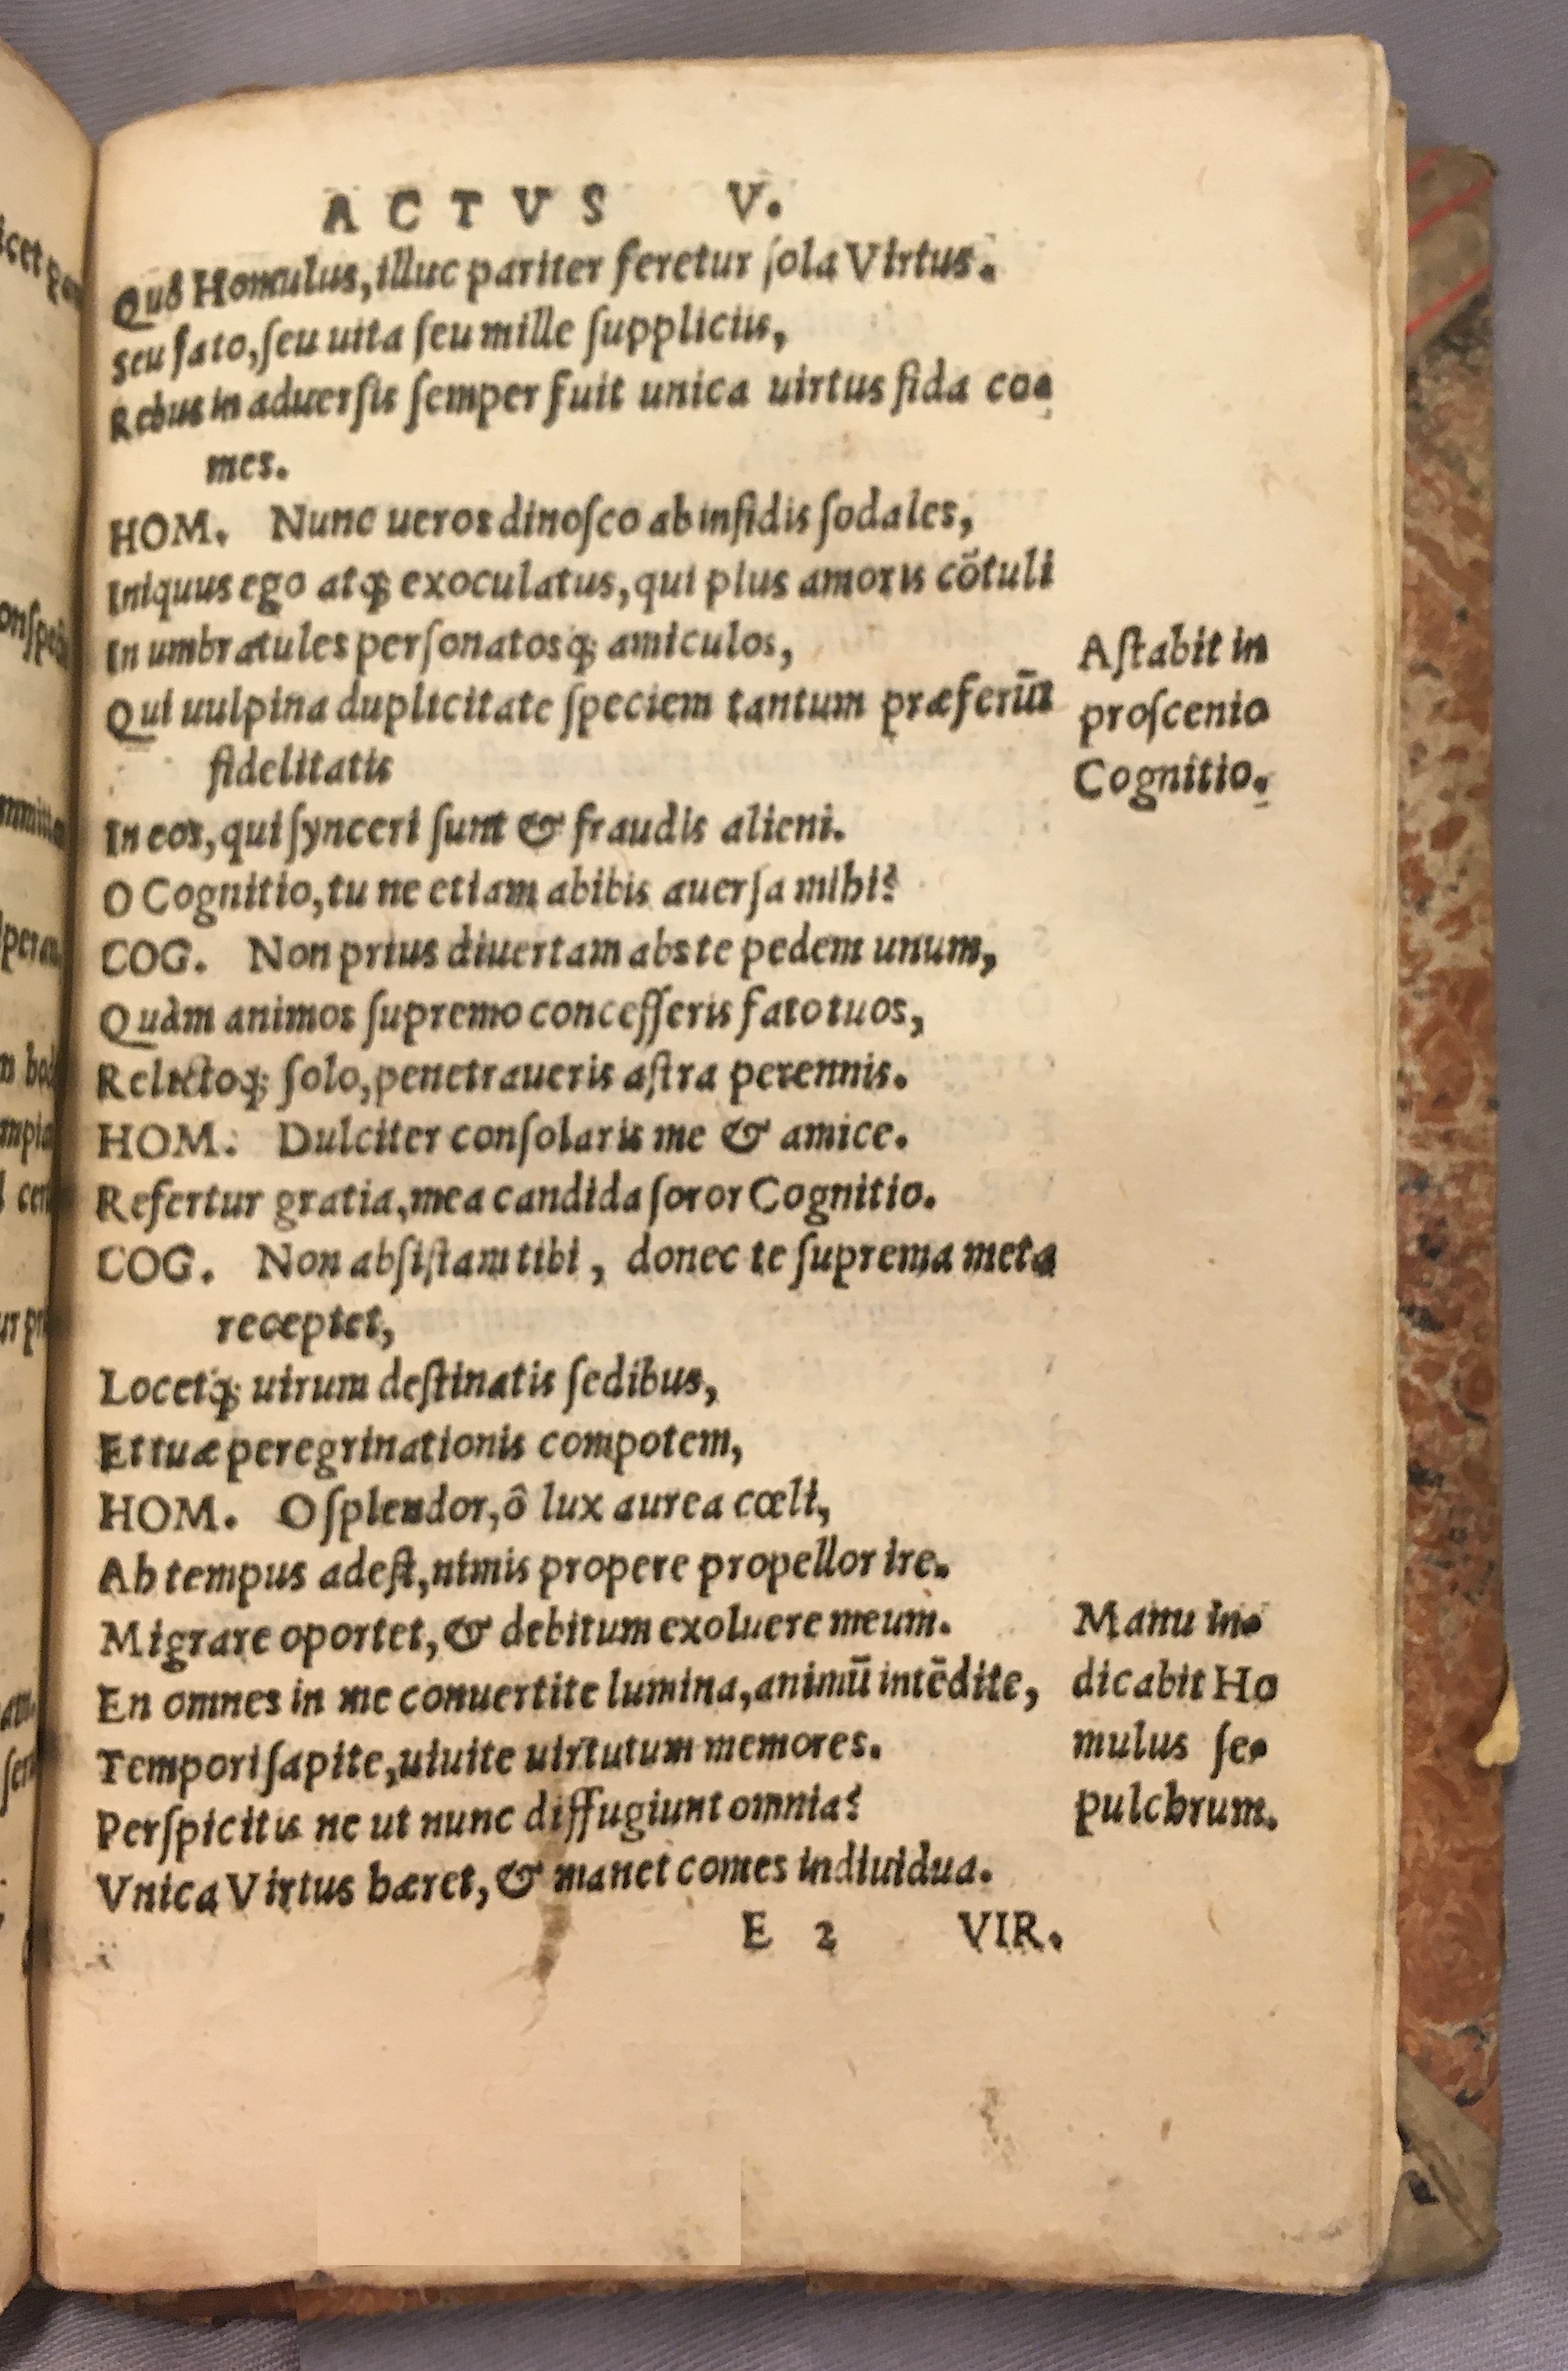 ACTVS V.
Quò Homulus, illuc pariter feretur ſola Virtus.
Seu fato, ſeu uita ſeu mille ſuppliciis,
Rebus in aduerſis ſemper fuit unica uirtus fida co⸗
mes.
HOM. Nunc ueros dinoſco ab infidis ſodales,
Iniquus ego atq; exoculatus, qui plus amoris cõtuli
In umbratules perſonatosq; amiculos,
Qui uulpina duplicitate ſpeciem tantum præferũt
fidelitatis
In eos, qui ſynceri ſunt & fraudis alieni.
O Cognitio, tu ne etiam abibis auerſa mihi?
COG. Non prius diuertam abs te pedem unum,
Quàm animos ſupremo conceſſeris fato tuos,
Relictoq; ſolo, penetraueris aſtra perennis.
HOM. Dulciter conſolaris me & amice.
Refertur gratia, mea candida ſoror Cognitio.
COG. Non abſiſtam tibi, donec te ſuprema meta
receptet,
Locetq; uirum deſtinatis ſedibus,
Et tuæ peregrinationis compotem,
HOM. O ſplendor, ô lux aurea cœli,
Ah tempus adeſt, nimis propere propellor ire.
Migrare oportet, & debitum exoluere meum.
En omnes in me conuertite lumina, animũ intẽdite,
Tempori ſapite, uiuite uirtutum memores.
Perſpicitis ne ut nunc diffugiunt omnia?
Vnica Virtus hæret, & manet comes indiuidua.
E 2 VIR.
Aſtabit in
proſcenio
Cognitio.
Manu in⸗
dicabit Ho
mulus ſe⸗
pulchrum.